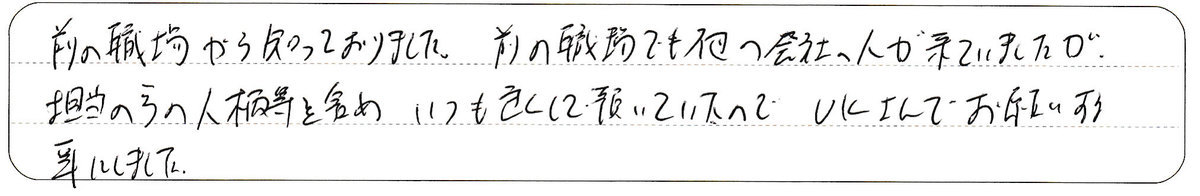 前の職場から知っておりました。前の職場でも他の会社の人が来ていましたが、
担当の方の人柄等を含め いつも良くして頂いていたので UKさんでお願いする
事にしました。